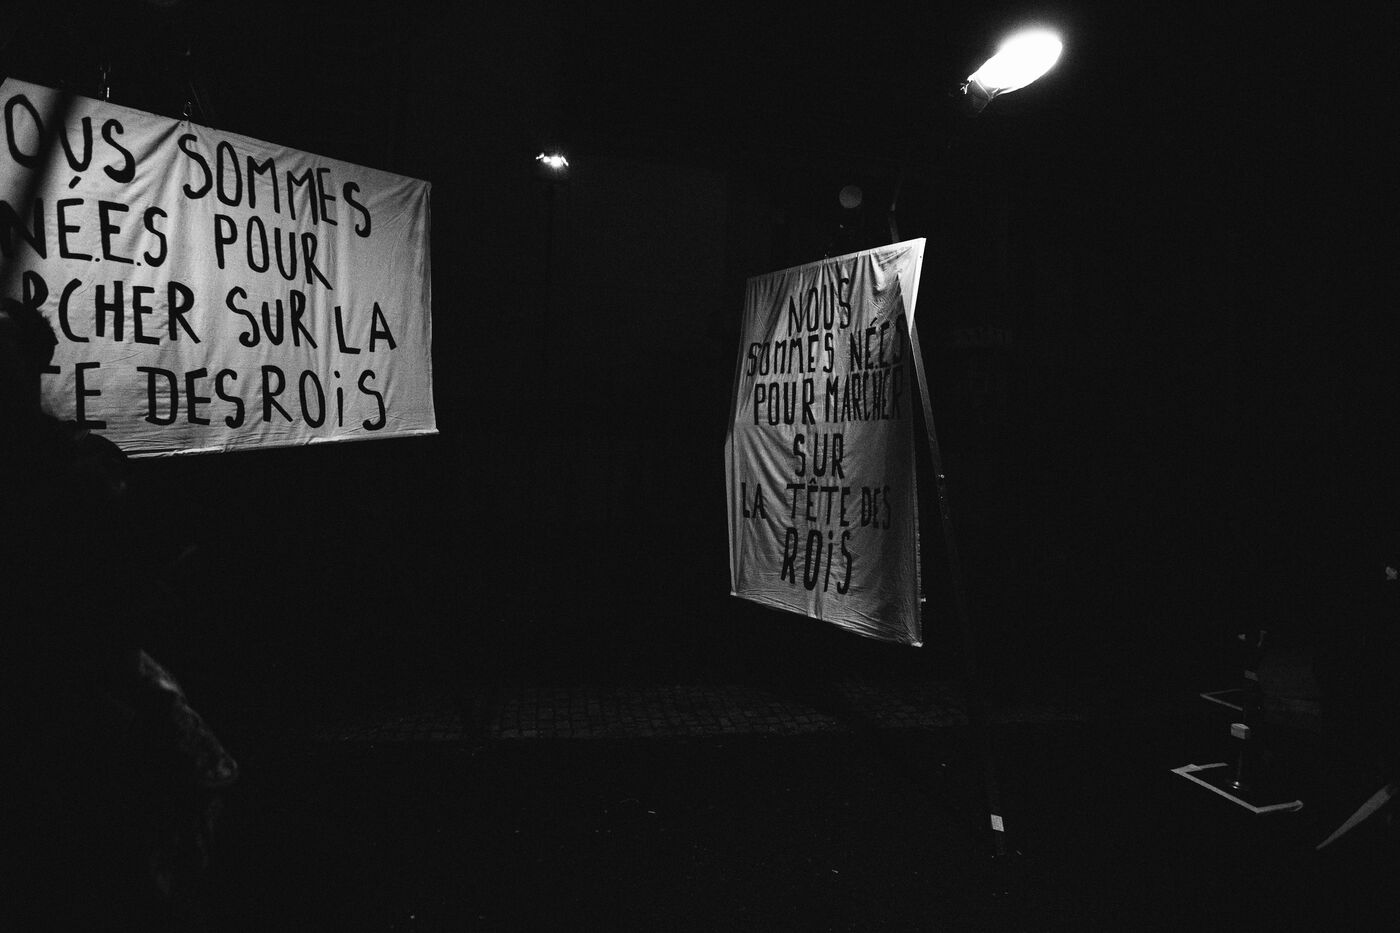 OUS SOMMES
NÉ.E.S POUR
RCHER SUR LA
TE DES ROiS
NOUS
SOMMES NÉ.E.S
POUR MARCHER
SUR
LA TÊTE DES
ROiS